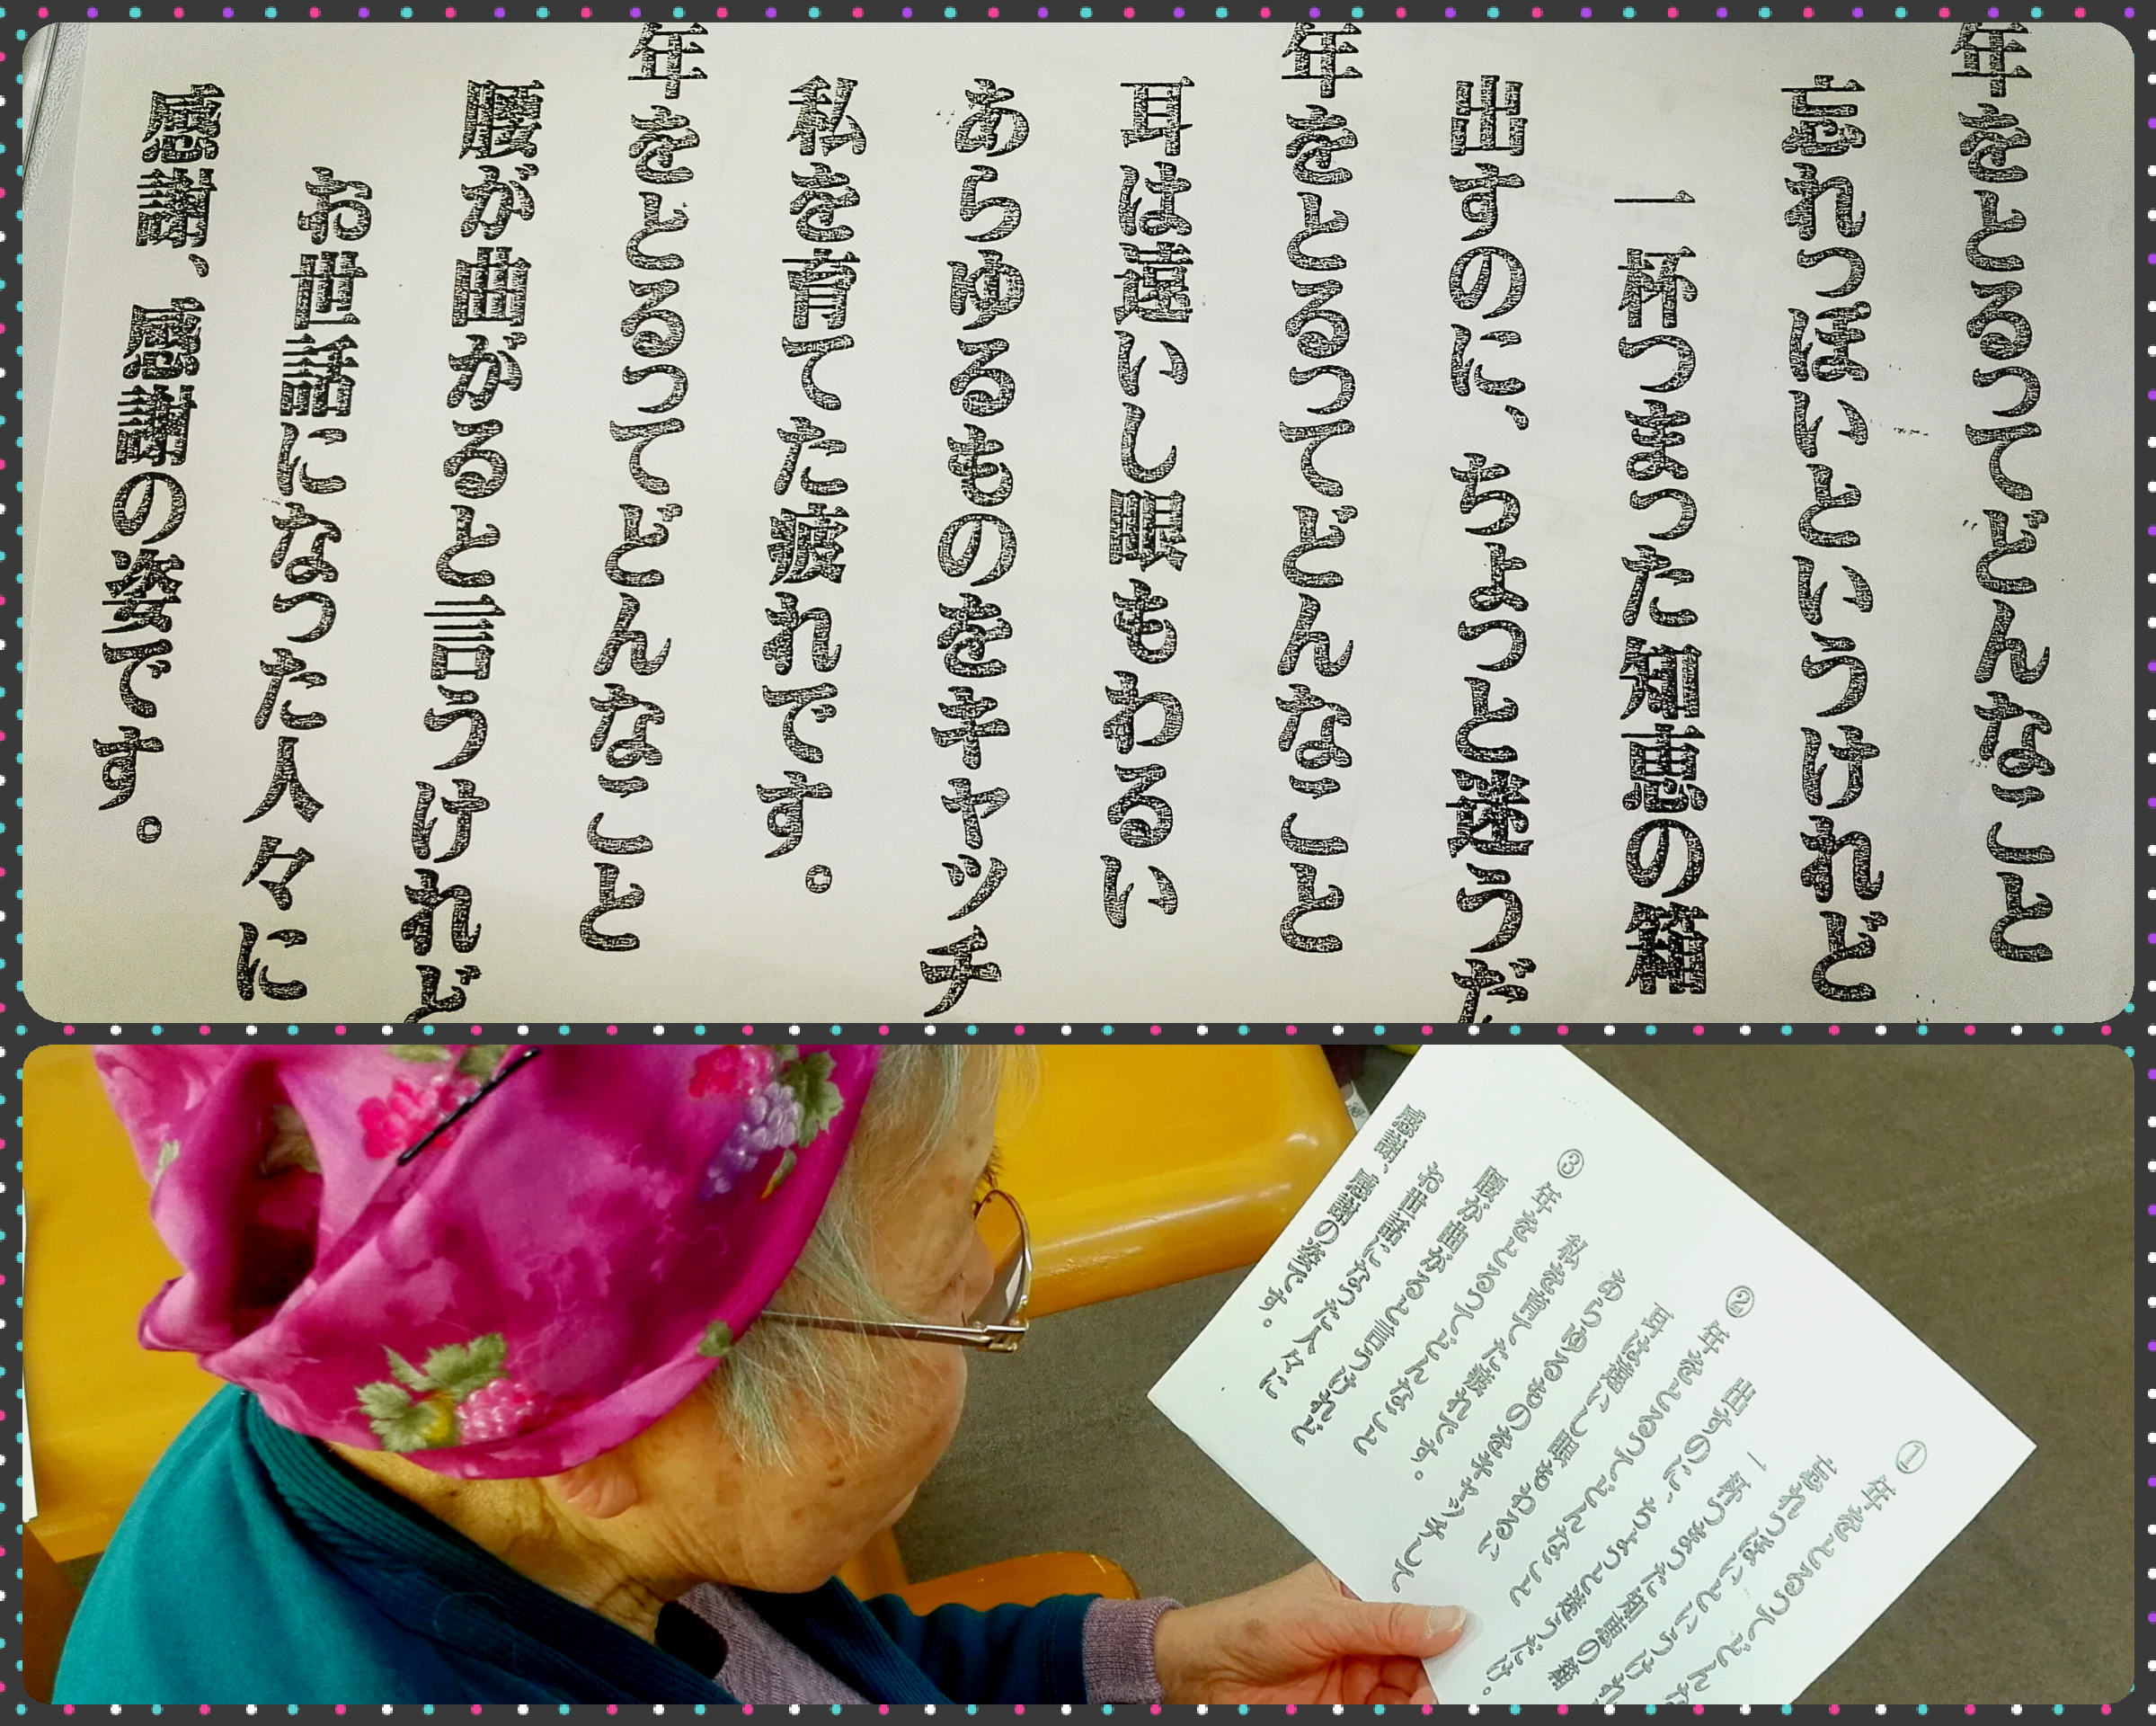 年をとるってどんなこと
忘れっぽいというけれど
一杯つまった知恵の箱
出すのに、ちょっと迷うだ
年をとるってどんなこと
耳は遠いし眼もわるい
あらゆるものをキャッチ
私を育てた疲れです。
年をとるってどんなこと
腰が曲がると言うけれど
お世話になった人々に
感謝、感謝の姿です。
①年をとるってどんな
忘れっぽいというけれ
一杯つまった知恵の箱
出すのに、ちょっと迷うだけ。
②年をとるってどんなこと
耳は遠いし眼もわるい
あらゆるものをキャッチして
私を育てた疲れです。
③年をとるってどんなこと
腰が曲がると言うけれど
お世話になった人々に
感謝、感謝の姿です。